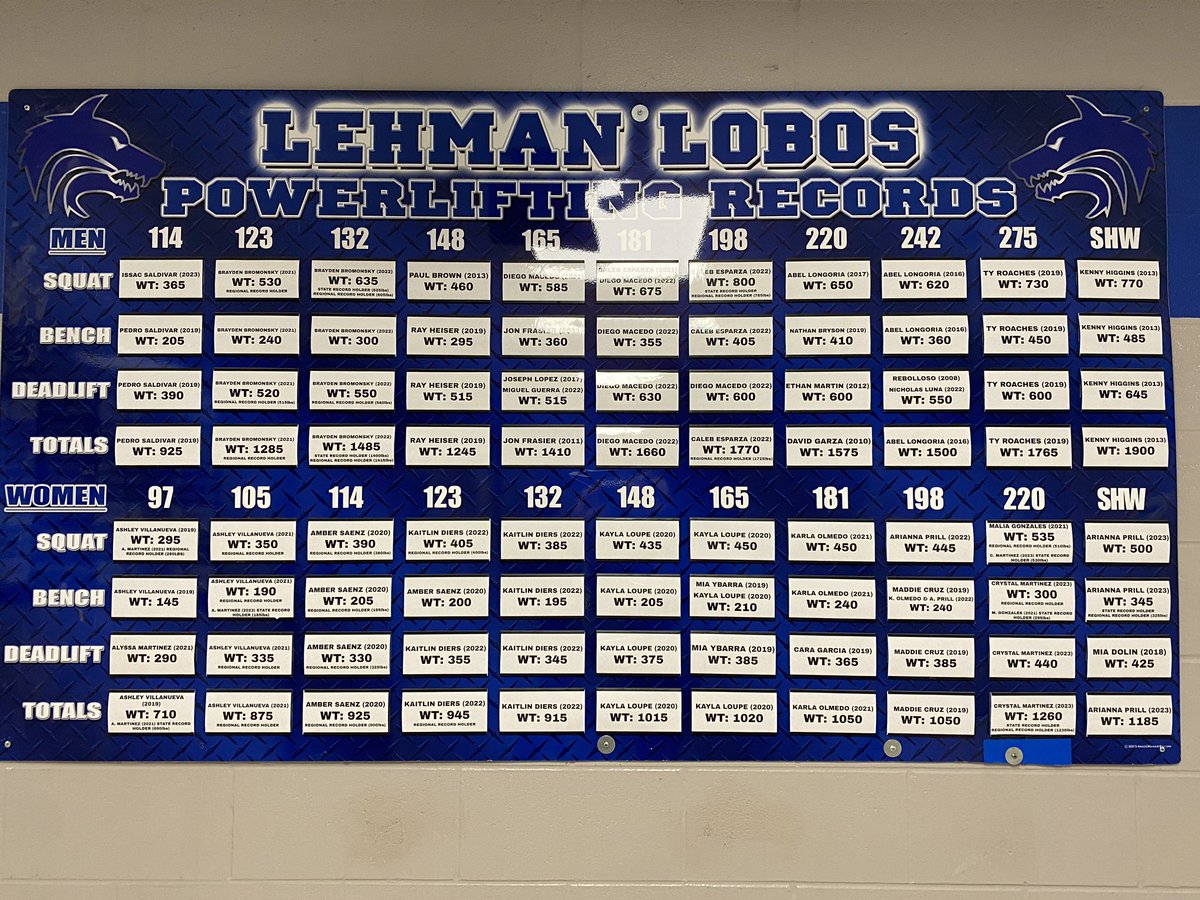 LEHMAN LOBOS
POWERLIFTING RECORDS
MEN 114 123 132 148 165 181 198 220 242 275 SHW
SQUAT
ISSAC SALDIVAR (2023)
WT: 365
BRAYDEN BROMONSKY (2021)
WT: 530
REGIONAL RECORD HOLDER
BRAYDEN BROMONSKY (2022)
WT: 635
STATE RECORD HOLDER (625lbs)
REGIONAL RECORD HOLDER (605lbs)
PAUL BROWN (2013)
WT: 460
DIEGO MACEDO
WT: 585
CALEB ESPARZA (2021)
DIEGO MACEDO (2022)
WT: 675
CALEB ESPARZA (2022)
WT: 800
STATE RECORD HOLDER
REGIONAL RECORD HOLDER (785lbs)
ABEL LONGORIA (2017)
WT: 650
ABEL LONGORIA (2016)
WT: 620
TY ROACHES (2019)
WT: 730
KENNY HIGGINS (2013)
WT: 770
BENCH
PEDRO SALDIVAR (2019)
WT: 205
BRAYDEN BROMONSKY (2021)
WT: 240
BRAYDEN BROMONSKY (2022)
WT: 300
RAY HEISER (2019)
WT: 295
JON FRASIER
WT: 360
DIEGO MACEDO (2022)
WT: 355
CALEB ESPARZA (2022)
WT: 405
NATHAN BRYSON (2019)
WT: 410
ABEL LONGORIA (2016)
WT: 360
TY ROACHES (2019)
WT: 450
KENNY HIGGINS (2013)
WT: 485
DEADLIFT
PEDRO SALDIVAR (2019)
WT: 390
BRAYDEN BROMONSKY (2021)
WT: 520
REGIONAL RECORD HOLDER (515lbs)
BRAYDEN BROMONSKY (2022)
WT: 550
REGIONAL RECORD HOLDER (540lbs)
RAY HEISER (2019)
WT: 515
JOSEPH LOPEZ (2017)
MIGUEL GUERRA (2022)
WT: 515
DIEGO MACEDO (2022)
WT: 630
DIEGO MACEDO (2022)
WT: 600
ETHAN MARTIN (2012)
WT: 600
REBOLLOSO (2008)
NICHOLAS LUNA (2022)
WT: 550
TY ROACHES (2019)
WT: 600
KENNY HIGGINS (2013)
WT: 645
TOTALS
PEDRO SALDIVAR (2019)
WT: 925
BRAYDEN BROMONSKY (2021)
WT: 1285
REGIONAL RECORD HOLDER
BRAYDEN BROMONSKY (2022)
WT: 1485
STATE RECORD HOLDER (1460lbs)
REGIONAL RECORD HOLDER (1415lbs)
RAY HEISER (2019)
WT: 1245
JON FRASIER (2011)
WT: 1410
DIEGO MACEDO (2022)
WT: 1660
CALEB ESPARZA (2022)
WT: 1770
REGIONAL RECORD HOLDER (1725lbs)
DAVID GARZA (2010)
WT: 1575
ABEL LONGORIA (2016)
WT: 1500
TY ROACHES (2019)
WT: 1765
KENNY HIGGINS (2013)
WT: 1900
WOMEN 97 105 114 123 132 148 165 181 198 220 SHW
SQUAT
ASHLEY VILLANUEVA (2019)
WT: 295
A. MARTINEZ (2021) REGIONAL
RECORD HOLDER (290LBS)
ASHLEY VILLANUEVA (2021)
WT: 350
REGIONAL RECORD HOLDER
AMBER SAENZ (2020)
WT: 390
REGIONAL RECORD HOLDER (380lbs)
KAITLIN DIERS (2022)
WT: 405
REGIONAL RECORD HOLDER (400lbs)
KAITLIN DIERS (2022)
WT: 385
KAYLA LOUPE (2020)
WT: 435
KAYLA LOUPE (2020)
WT: 450
KARLA OLMEDO (2021)
WT: 450
ARIANNA PRILL (2022)
WT: 445
MALIA GONZALES (2021)
WT: 535
REGIONAL RECORD HOLDER (510lbs)
C. MARTINEZ (2023) STATE RECORD
HOLDER (530lbs)
ARIANNA PRILL (2023)
WT: 500
BENCH
ASHLEY VILLANUEVA (2019)
WT: 145
ASHLEY VILLANUEVA (2021)
WT: 190
REGIONAL RECORD HOLDER
A. MARTINEZ (2023) STATE RECORD
HOLDER (185lbs)
AMBER SAENZ (2020)
WT: 205
REGIONAL RECORD HOLDER (195lbs)
AMBER SAENZ (2020)
WT: 200
KAITLIN DIERS (2022)
WT: 195
KAYLA LOUPE (2020)
WT: 205
MIA YBARRA (2019)
KAYLA LOUPE (2020)
WT: 210
KARLA OLMEDO (2021)
WT: 240
MADDIE CRUZ (2019)
K. OLMEDO & A. PRILL (2022)
WT: 240
CRYSTAL MARTINEZ (2023)
WT: 300
REGIONAL RECORD HOLDER
M. GONZALES (2021) STATE RECORD
HOLDER (295lbs)
ARIANNA PRILL (2023)
WT: 345
STATE RECORD HOLDER
REGIONAL RECORD HOLDER (325lbs)
DEADLIFT
ALYSSA MARTINEZ (2021)
WT: 290
ASHLEY VILLANUEVA (2021)
WT: 335
REGIONAL RECORD HOLDER
AMBER SAENZ (2020)
WT: 330
REGIONAL RECORD HOLDER (325lbs)
KAITLIN DIERS (2022)
WT: 355
KAITLIN DIERS (2022)
WT: 345
KAYLA LOUPE (2020)
WT: 375
MIA YBARRA (2019)
WT: 385
CARA GARCIA (2019)
WT: 365
MADDIE CRUZ (2019)
WT: 385
CRYSTAL MARTINEZ (2023)
WT: 440
MIA DOLIN (2018)
WT: 425
TOTALS
ASHLEY VILLANUEVA
(2019)
WT: 710
A. MARTINEZ (2021) STATE RECORD
HOLDER (690lbs)
ASHLEY VILLANUEVA (2021)
WT: 875
REGIONAL RECORD HOLDER
AMBER SAENZ (2020)
WT: 925
REGIONAL RECORD HOLDER (900lbs)
KAITLIN DIERS (2022)
WT: 945
REGIONAL RECORD HOLDER
KAITLIN DIERS (2022)
WT: 915
KAYLA LOUPE (2020)
WT: 1015
KAYLA LOUPE (2020)
WT: 1020
KARLA OLMEDO (2021)
WT: 1050
MADDIE CRUZ (2019)
WT: 1050
CRYSTAL MARTINEZ (2023)
WT: 1260
STATE RECORD HOLDER
REGIONAL RECORD HOLDER (1235lbs)
ARIANNA PRILL (2023)
WT: 1185